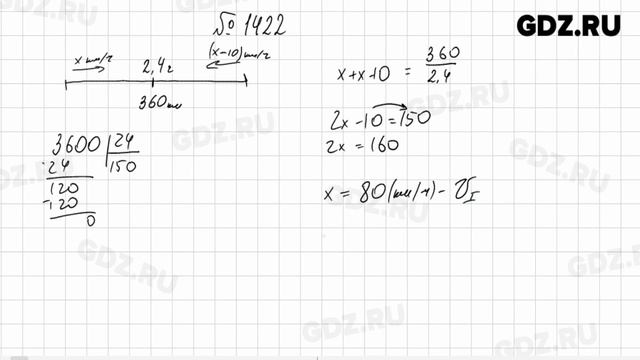 № 1422
GDZ.RU
x км/ч 2,4 ч (x-10) км/ч
360 км
x+x-10 = 360/2,4
2x-10=150
2x = 160
x = 80 (км/ч) - VI
3600 | 24
24 150
120
-120
0
GDZ.RU
GDZ.RU
GDZ.RU
GDZ.RU
GDZ.RU
GDZ.RU